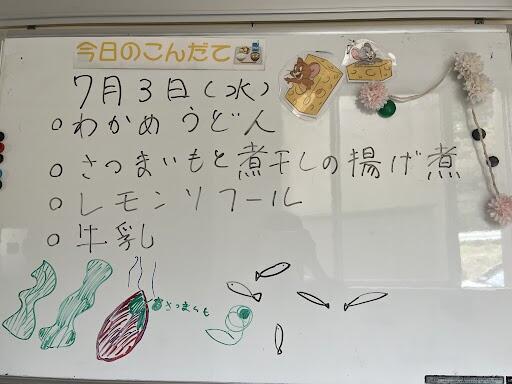 今日のこんだて
7月3日(水)
○わかめうどん
○さつまいもと煮干しの揚げ煮
○レモンソフール
○牛乳
さつまいも